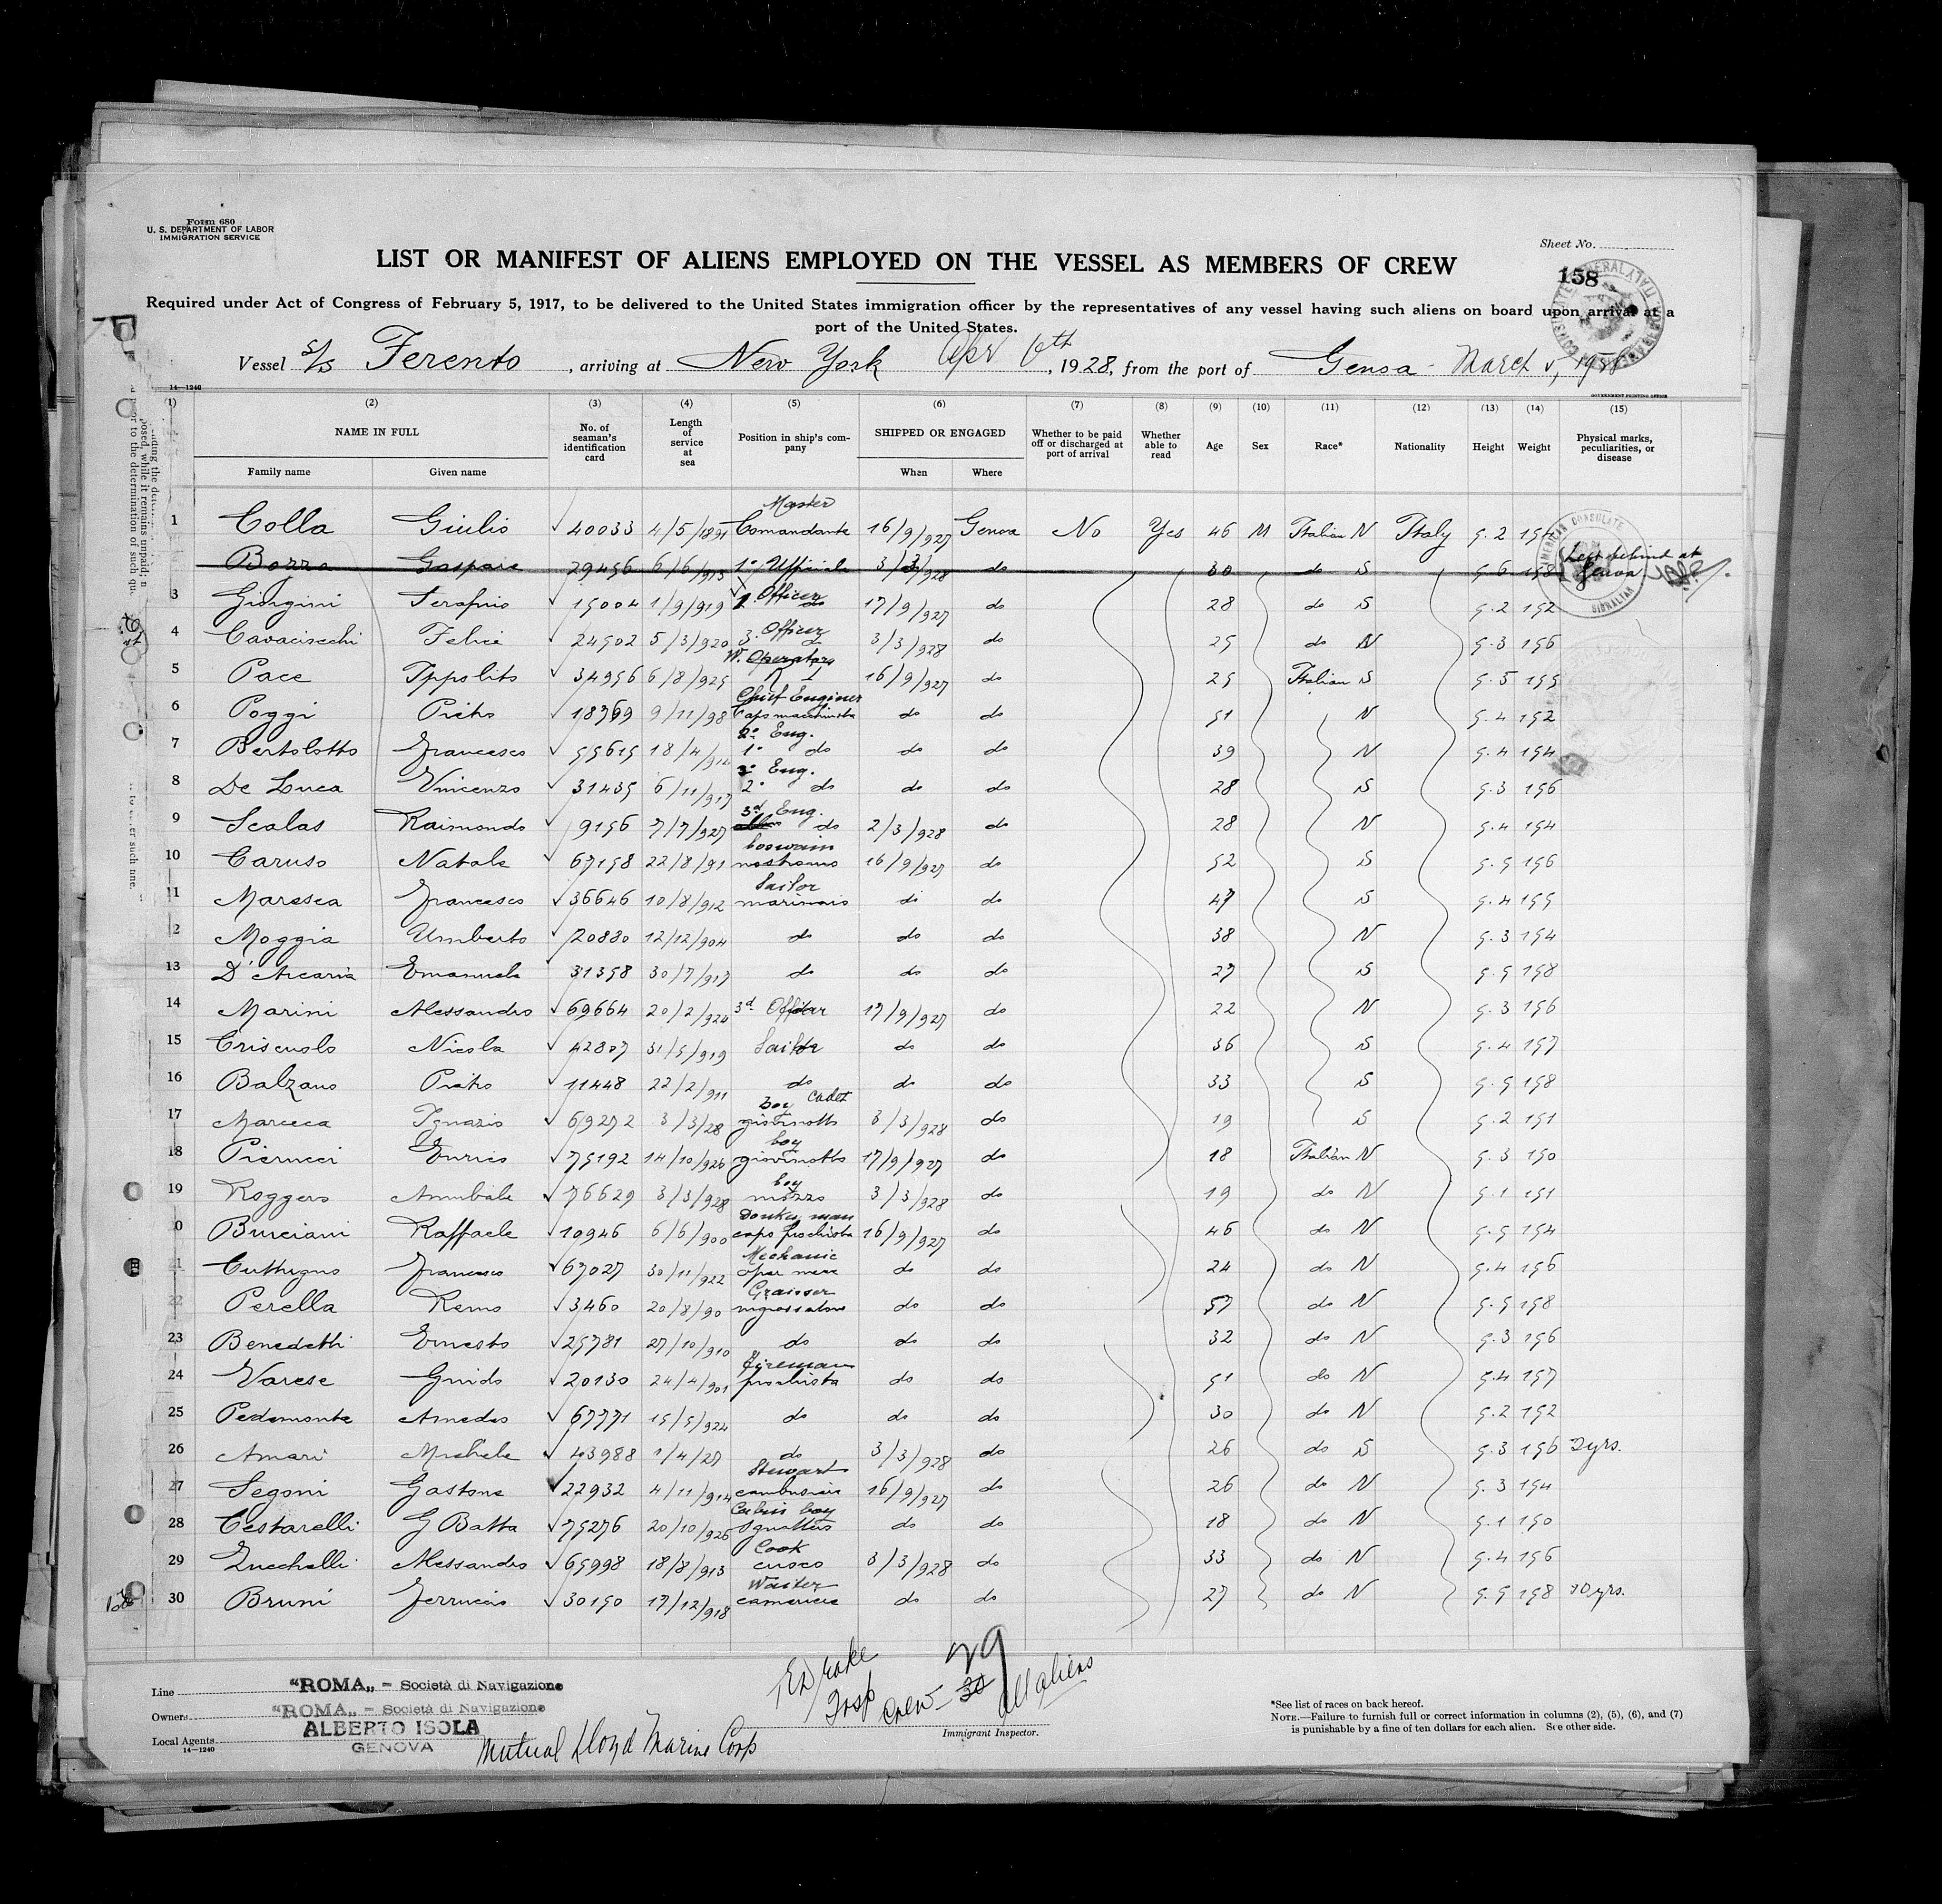 Form 680
U. S. DEPARTMENT OF LABOR
IMMIGRATION SERVICE
Sheet No.
LIST OR MANIFEST OF ALIENS EMPLOYED ON THE VESSEL AS MEMBERS OF CREW
158
Required under Act of Congress of February 5, 1917, to be delivered to the United States immigration officer by the representatives of any vessel having such aliens on board upon arrival at a
port of the United States.
Vessel S/S Ferento, arriving at New York Apr 6th, 1928, from the port of Genoa - March 5, 1928
14—1240
GOVERNMENT PRINTING OFFICE
(1) (2) (3) (4) (5) (6) (7) (8) (9) (10) (11) (12) (13) (14) (15)
NAME IN FULL No. of seaman's identification card Length of service at sea Position in ship's company SHIPPED OR ENGAGED Whether to be paid off or discharged at port of arrival Whether able to read Age Sex Race* Nationality Height Weight Physical marks, peculiarities, or disease
Family name Given name When Where
Master
1 Colla Giulio 40033 4/5/1891 Comandante 16/9/927 Genoa No Yes 46 M Italian N Italy 5.2 154
Bozzo Gaspare 29456 6/6/913 1° Ufficiale 3/3/928 do 30 do S 5.6 158 Left behind at Genoa
Officer
3 Giorgini Serafino 15004 1/9/919 do 17/9/927 do 28 do S 5.2 152
3. Officer
4 Cavacisechi Felice 24502 5/3/920 do 3/3/928 do 25 do N 5.3 156
W. Operator
5 Pace Ippolito 34956 6/8/925 16/9/927 do 25 Italian S 5.5 155
Chief Enginer
6 Poggi Pietro 18769 9/11/98 Capo macchinista do do 51 N 5.4 152
2° Eng.
7 Bertolotto Francesco 55615 18/4/912 1° do do do 39 N 5.4 154
3° Eng.
8 De Luca Vincenzo 31435 6/11/917 2° do do do 28 S 5.3 156
3d Eng.
9 Scalas Raimondo 9156 7/7/927 do 2/3/928 do 28 N 5.4 154
boswain
10 Caruso Natale 67158 22/8/91 nostromo 16/9/927 do 52 S 5.5 156
Sailor
11 Maresca Francesco 36646 10/8/912 marinaio di do 47 S 5.4 155
2 Moggia Umberto 20880 12/12/904 do do do 38 N 5.3 154
13 D'Ancaria Emanuele 31358 30/7/917 do do do 27 S 5.5 158
14 Marini Alessandro 69664 20/2/924 3d Officer 17/9/927 do 22 N 5.3 156
15 Criscuolo Nicola 42807 31/5/919 Sailor do do 36 S 5.4 157
16 Balzano Pietro 11448 22/2/911 do do do 33 S 5.5 158
boy cadet
17 Marceca Ignazio 69272 3/3/28 giovinotto 3/3/928 do 19 S 5.2 151
boy
18 Pierucci Enrico 75192 14/10/926 giovinotto 17/9/927 do 18 Italian N 5.3 150
boy
19 Roggero Annibale 76629 3/3/928 mozzo 3/3/928 do 19 do N 5.1 151
Donkey man
0 Burciani Raffaele 10946 6/6/900 capo fuochista 16/9/927 do 46 do N 5.5 154
Mechanic
21 Cuttigno Francesco 67027 30/11/922 oper mecc do do 24 do N 5.4 156
Graisser
22 Perella Remo 3460 20/8/90 ingrassatore do do 57 do N 5.5 158
23 Benedetti Ernesto 25781 27/10/910 do do do 32 do N 5.3 156
Fireman
24 Varese Guido 20130 24/4/901 fuochista do do 51 do N 5.4 157
25 Pedemonte Amedeo 67771 15/5/924 do do do 30 do N 5.2 152
26 Amari Michele 43988 1/4/27 do 3/3/928 do 26 do S 5.3 156 2yrs.
Stewart
27 Segoni Gastone 22932 4/11/914 cambusiere 16/9/927 do 26 do N 5.3 154
Cabin boy
28 Cestarelli G Batta 75276 20/10/926 Sguattero do do 18 do N 5.1 150
Cook
29 Zucchelli Alessandro 65998 18/8/913 cuoco 3/3/928 do 33 do N 5.4 156
Waiter
30 Bruni Ferruccio 30150 17/12/918 cameriere do do 27 do N 5.5 158 10yrs.
Line "ROMA„ – Società di Navigazione
Owners "ROMA„ – Società di Navigazione
Local Agents ALBERTO ISOLA
GENOVA
14—1240
Mutual Lloyd Marine Corp
Drake
Insp
Crew 30 29 All aliens
Immigrant Inspector.
*See list of races on back hereof.
NOTE.—Failure to furnish full or correct information in columns (2), (5), (6), and (7)
is punishable by a fine of ten dollars for each alien. See other side.